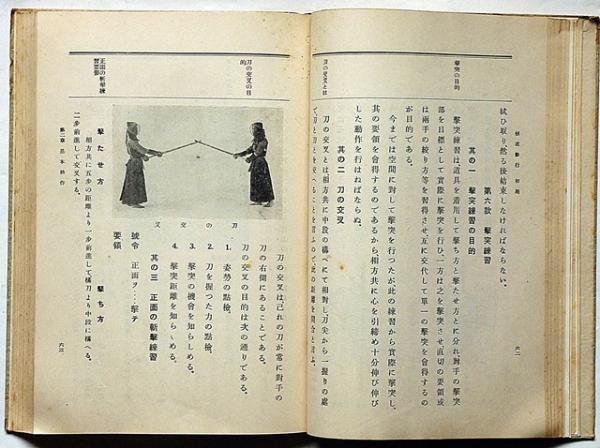 拭ひ取り然る後結束しなければならない。
第六款 撃突練習
其の一 撃突練習の目的
撃突練習は、道具を着用して撃ち方と撃たせ方とに分れ對手の撃突
部を目標として實際に撃突を行ひ、一方は之を撃突させ直切の要領或
は兩手の絞り方等を習得させ互に交代して單一の撃突を會得するの
が目的である。
今までは空間に對して撃突を行つたが此の練習から實際に撃突し、
其の要領を會得するのであるから相方共に心を引締め十分伸び伸び
した動作を行はねばならぬ。
其の二 刀の交叉
刀の交叉とは相方共に中段の構へにて相對し刀尖から一握りの處
撃突の目的
刀の交叉とは
六二
刀の交叉の目的
正面の斬撃練習要領
刀の交叉
刀の交叉は己れの刀が常に對手の
刀の右側にあることである。
刀の交叉の目的は次の通りである。
1. 姿勢の點檢。
2. 刀を握つた力の點檢。
3. 撃突の機會を知らしめる。
4. 撃突距離を知らしめる。
其の三 正面の斬撃練習
號令 正面ヲ…撃テ
要領
撃たせ方 撃ち方
相方共に五歩の距離より一歩前進して構刀より中段に構へる。
二歩前進して交叉する。
第二章 基本動作
六三